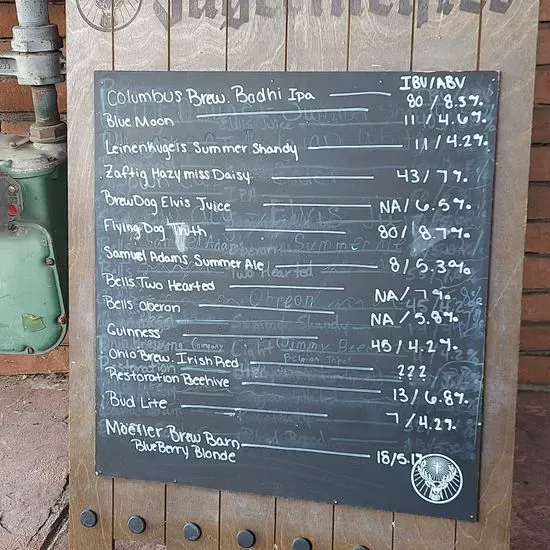 Jägermeister
IBV/ABV
Columbus Brew. Bodhi Ipa 80/8.3%
Blue Moon 11/4.6%
Leinenkugels Summer Shandy 11/4.2%
Zaftig Hazy miss Daisy 43/7%
BrewDog Elvis Juice NA/6.5%
Flying Dog Truth 80/8.7%
Samuel Adams Summer Ale 8/5.3%
Bells Two Hearted NA/7%
Bells Oberon NA/5.8%
Guinness 45/4.2%
Ohio Brew. Irish Red ???
Restoration Beehive 13/6.8%
Bud Lite 7/4.2%
Moeller Brew Barn
BlueBerry Blonde 18/5.1%